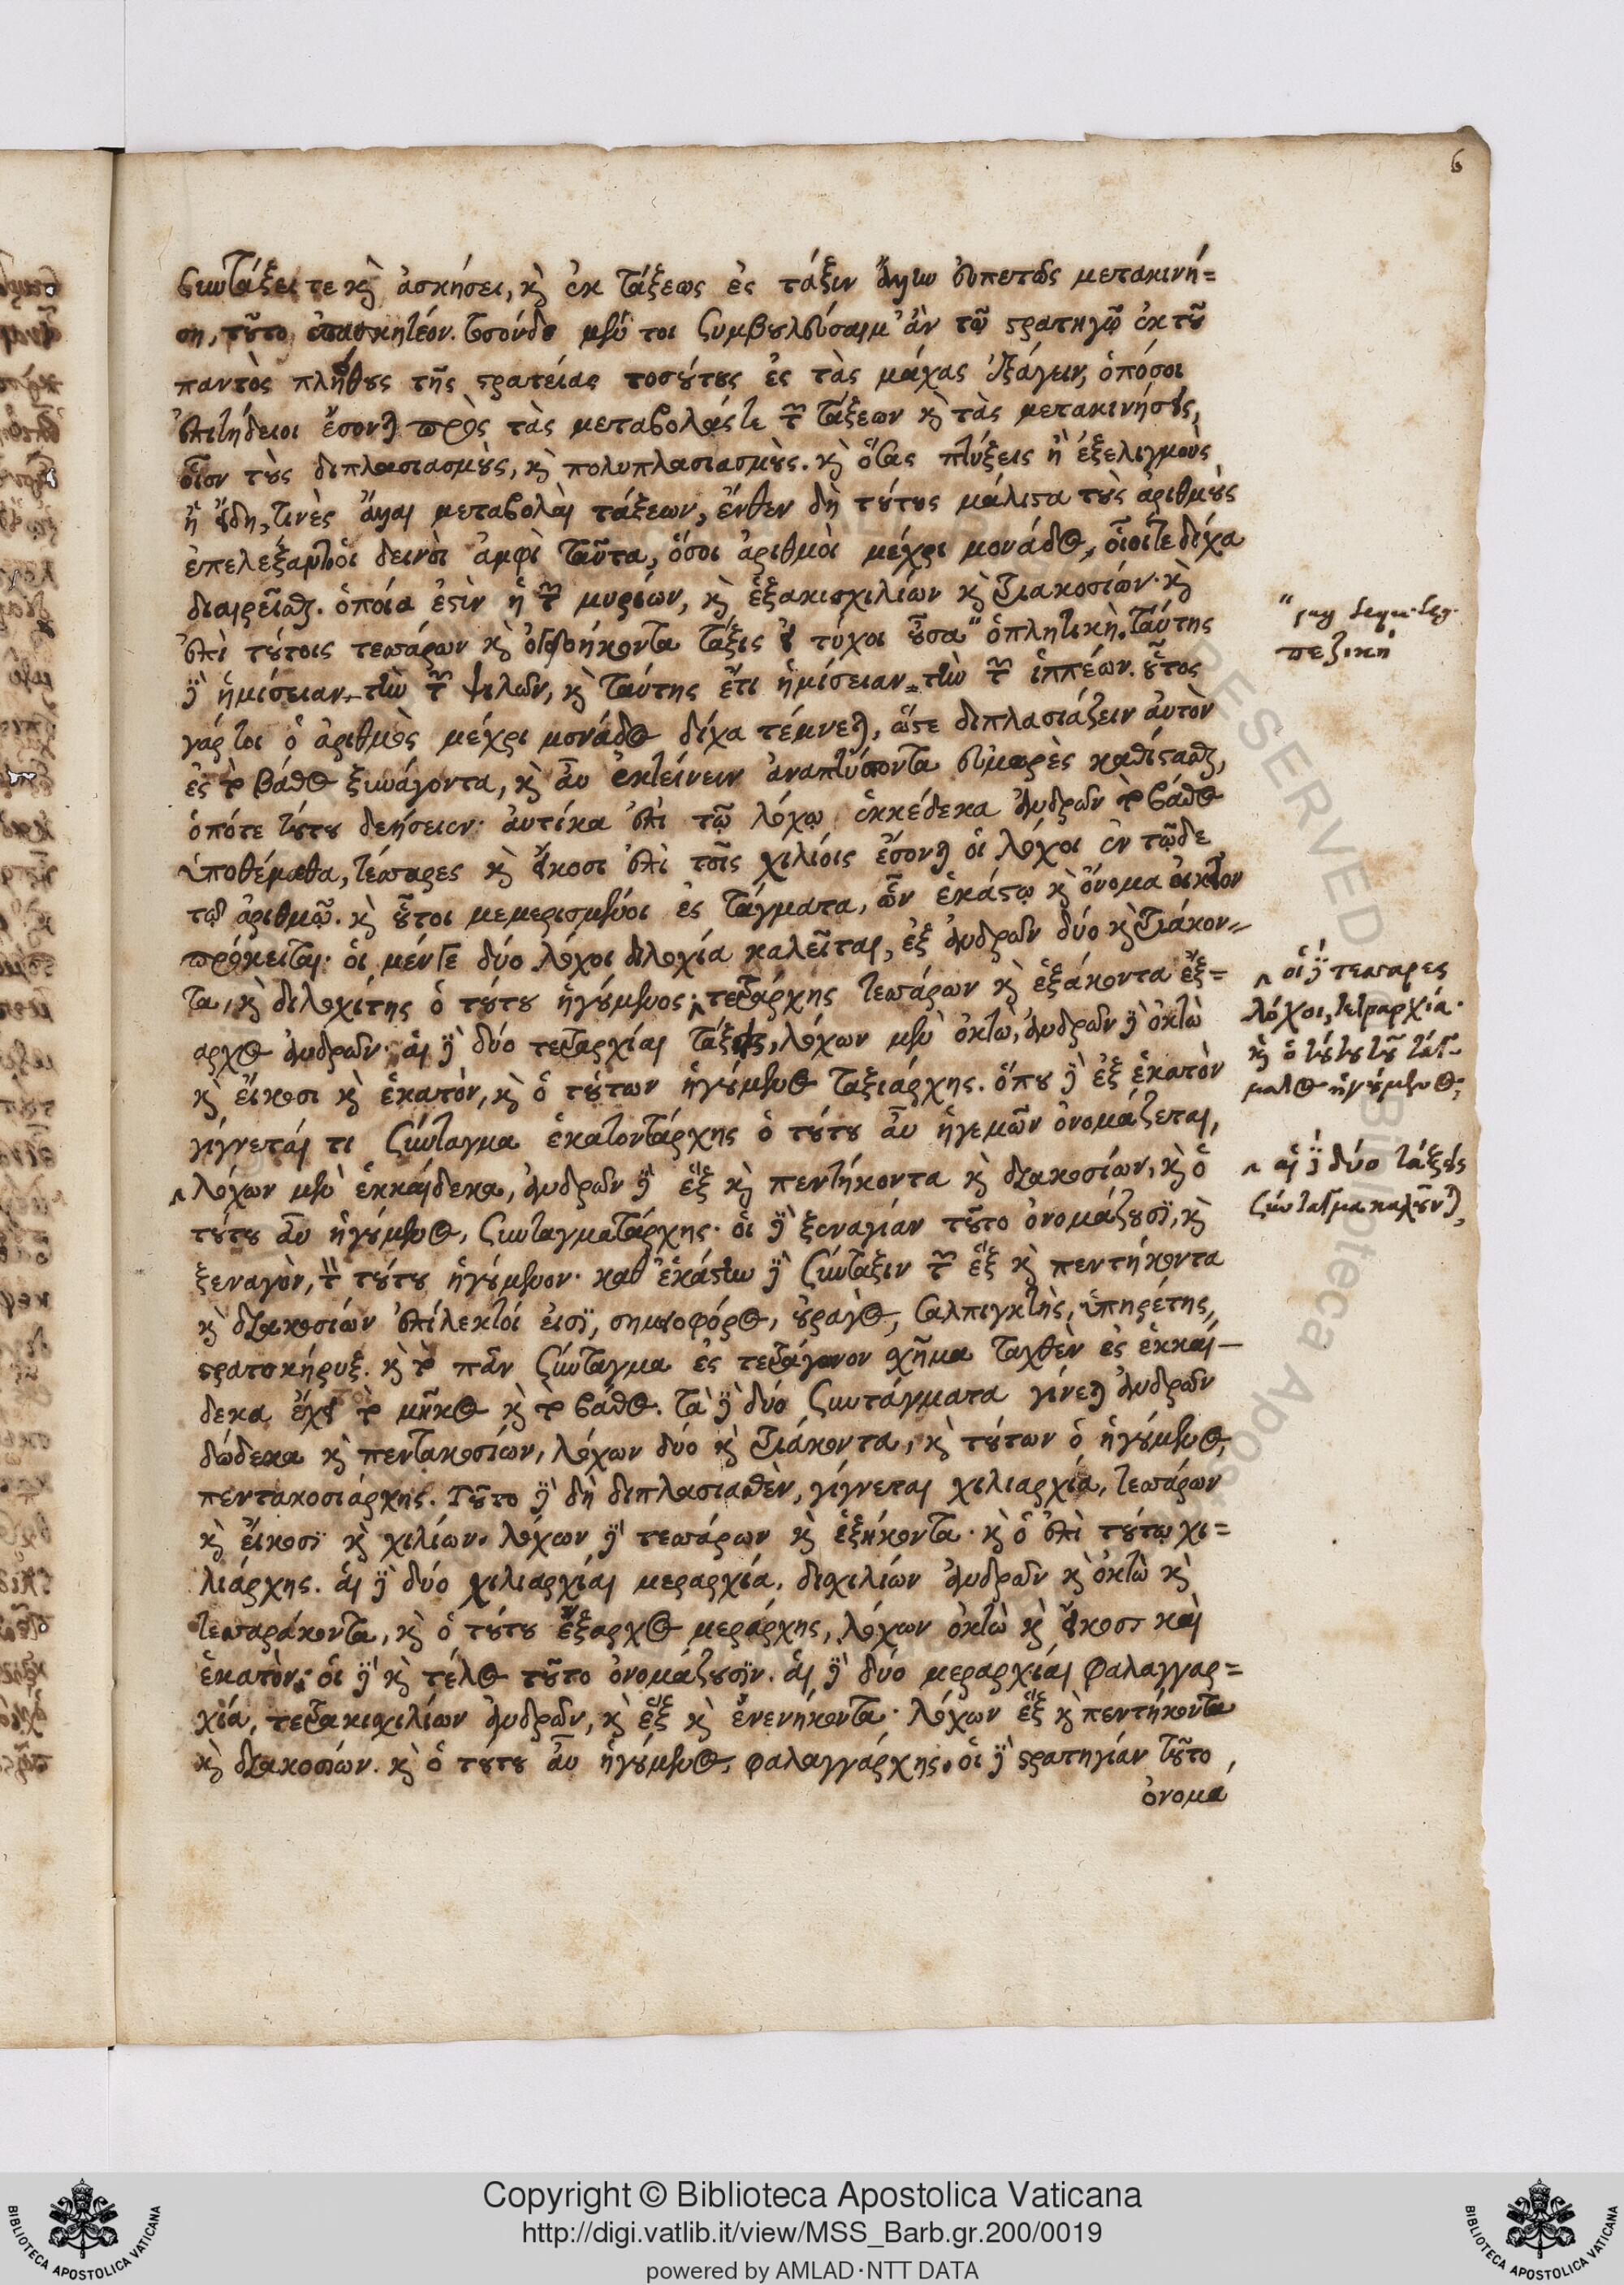 6
συντάξει τε καὶ ἀσκήσει, καὶ ἐκ τάξεως ἐς τάξιν ἄλλην εὐπετῶς μετακινή=
ση, τοῦτο ἐπασκητέον. τοσόνδε μέν τοι συμβουλεύσαιμ' ἂν τῷ στρατηγῷ ἐκ τοῦ
παντὸς πλήθους τῆς στρατείας τοσούτους ἐς τὰς μάχας ἐξάγειν, ὁπόσοι
ἐπιτήδειοι ἔσονται πρὸς τὰς μεταβολάς τε τῶν τάξεων καὶ τὰς μετακινήσεις,
οἷον τοὺς διπλασιασμοὺς, καὶ πολυπλασιασμοὺς. καὶ ὅσας πτύξεις ἢ ἐξελιγμοὺς
ἢ εἴδη, τινὲς ἄλλαι μεταβολαὶ τάξεων, ἔνθεν δὴ τούτους μάλιστα τοὺς ἀριθμοὺς
ἐπελεξαντο οἱ δεινοὶ ἀμφὶ ταῦτα, ὅσοι ἀριθμοὶ μέχρι μονάδος, οἷοί τε δίχα
διαιρεῖσθαι. ὁποία ἐστὶν ἡ τῶν μυρίων, καὶ ἑξακισχιλίων καὶ τριακοσίων· καὶ
ἐπὶ τούτοις τεσσάρων καὶ ὀγδοήκοντα τάξις εἰ τύχοι οὖσα" ὁπλητικὴ. ταύτης
δὲ ἡμίσειαν, τὴν τῶν ψιλῶν, καὶ ταύτης ἔτι ἡμίσειαν, τὴν τῶν ἱππέων. οὗτος
γάρ τοι ὁ ἀριθμὸς μέχρι μονάδος δίχα τέμνεται, ὥστε διπλασιάζειν αὐτὸν
ἐς τὸ βάθος ξυνάγοντα, καὶ αὖ ἐκτείνειν ἀναπτύσσοντα εὐμαρὲς καθίστασθαι,
ὁπότε τούτου δεήσειεν· αὐτίκα ἐπὶ τῷ λόχῳ ἑκκέδεκα ἀνδρῶν τὸ βάθος
ὑποθέμεθα, τέσσαρες καὶ εἴκοσι ἐπὶ τοῖς χιλίοις ἔσονται οἱ λόχοι ἐν τῷδε
τῷ ἀριθμῷ. καὶ οὗτοι μεμερισμένοι ἐς τάγματα, ὧν ἑκάστῳ καὶ ὄνομα οἰκεῖον
πρόκειται· οἱ μέν γε δύο λόχοι διλοχία καλεῖται, ἐξ ἀνδρῶν δύο καὶ τριάκον=
τα, καὶ διλοχίτης ὁ τούτου ἡγούμενος· ‸ τετράρχης τεσσάρων καὶ ἑξάκοντα ἔξ=
αρχος ἀνδρῶν· αἱ δὲ δύο τετραρχίαι τάξις, λόχων μὲν ὀκτὼ, ἀνδρῶν δὲ ὀκτὼ
καὶ εἴκοσι καὶ ἑκατὸν, καὶ ὁ τούτων ἡγούμενος ταξιάρχης. ὅπου δὲ ἐξ ἑκατὸν
γίγνεταί τι σύνταγμα ἑκατοντάρχης ὁ τούτου αὖ ἡγεμὼν ὀνομάζεται,
‸ λόχων μὲν ἑκκαίδεκα, ἀνδρῶν δὲ ἓξ καὶ πεντήκοντα καὶ διακοσίων, καὶ ὁ
τούτου αὖ ἡγούμενος, συνταγματάρχης· οἱ δὲ ξεναγίαν τοῦτο ὀνομάζουσι, καὶ
ξεναγὸν, τὸν τούτου ἡγούμενον· καθ' ἑκάστην δὲ σύνταξιν τῶν ἓξ καὶ πεντήκοντα
καὶ διακοσίων ἐπίλεκτοί εἰσι, σημειοφόρος, οὐραγὸς, σαλπιγκτὴς, ὑπηρέτης,
στρατοκήρυξ. καὶ τὸ πᾶν σύνταγμα ἐς τετράγωνον σχῆμα ταχθὲν ἐς ἑκκαί-
δεκα ἔχει τὸ μῆκος καὶ τὸ βάθος. τὰ δὲ δύο συντάγματα γίνεται ἀνδρῶν
δώδεκα καὶ πεντακοσίων, λόχων δύο καὶ τριάκοντα, καὶ τούτων ὁ ἡγούμενος,
πεντακοσιάρχης. τοῦτο δὲ δὴ διπλασιασθὲν, γίγνεται χιλιαρχία, τεσσάρων
καὶ εἴκοσι καὶ χιλίων. λόχων δὲ τεσσάρων καὶ ἑξήκοντα· καὶ ὁ ἐπὶ τούτῳ χι=
λιάρχης. αἱ δὲ δύο χιλιαρχίαι μεραρχία, δισχιλίων ἀνδρῶν καὶ ὀκτὼ καὶ
τεσσαράκοντα, καὶ ὁ τούτου ἔξαρχος μεράρχης, λόχων ὀκτὼ καὶ εἴκοσι καὶ
ἑκατὸν· οἱ δὲ καὶ τέλος τοῦτο ὀνομάζουσιν. αἱ δὲ δύο μεραρχίαι φαλαγγαρ=
χία, τετρακισχιλίων ἀνδρῶν, καὶ ἓξ καὶ ἐνενήκοντα· λόχων ἓξ καὶ πεντήκοντα
καὶ διακοσίων. καὶ ὁ τούτου αὖ ἡγούμενος, φαλαγγάρχης. οἱ δὲ στρατηγίαν τοῦτο,
ὄνομα
πεζικὴ
‸ οἱ δὲ τέσσαρες
λόχοι, τετραρχία·
καὶ ὁ τούτου τοῦ τάγ-
ματος ἡγούμενος,
‸ αἱ δὲ δύο τάξεις
σύνταγμα καλοῦνται,
Copyright © Biblioteca Apostolica Vaticana
http://digi.vatlib.it/view/MSS_Barb.gr.200/0019
powered by AMLAD·NTT DATA
BIBLIOTECA APOSTOLICA VATICANA
BIBLIOTECA APOSTOLICA VATICANA